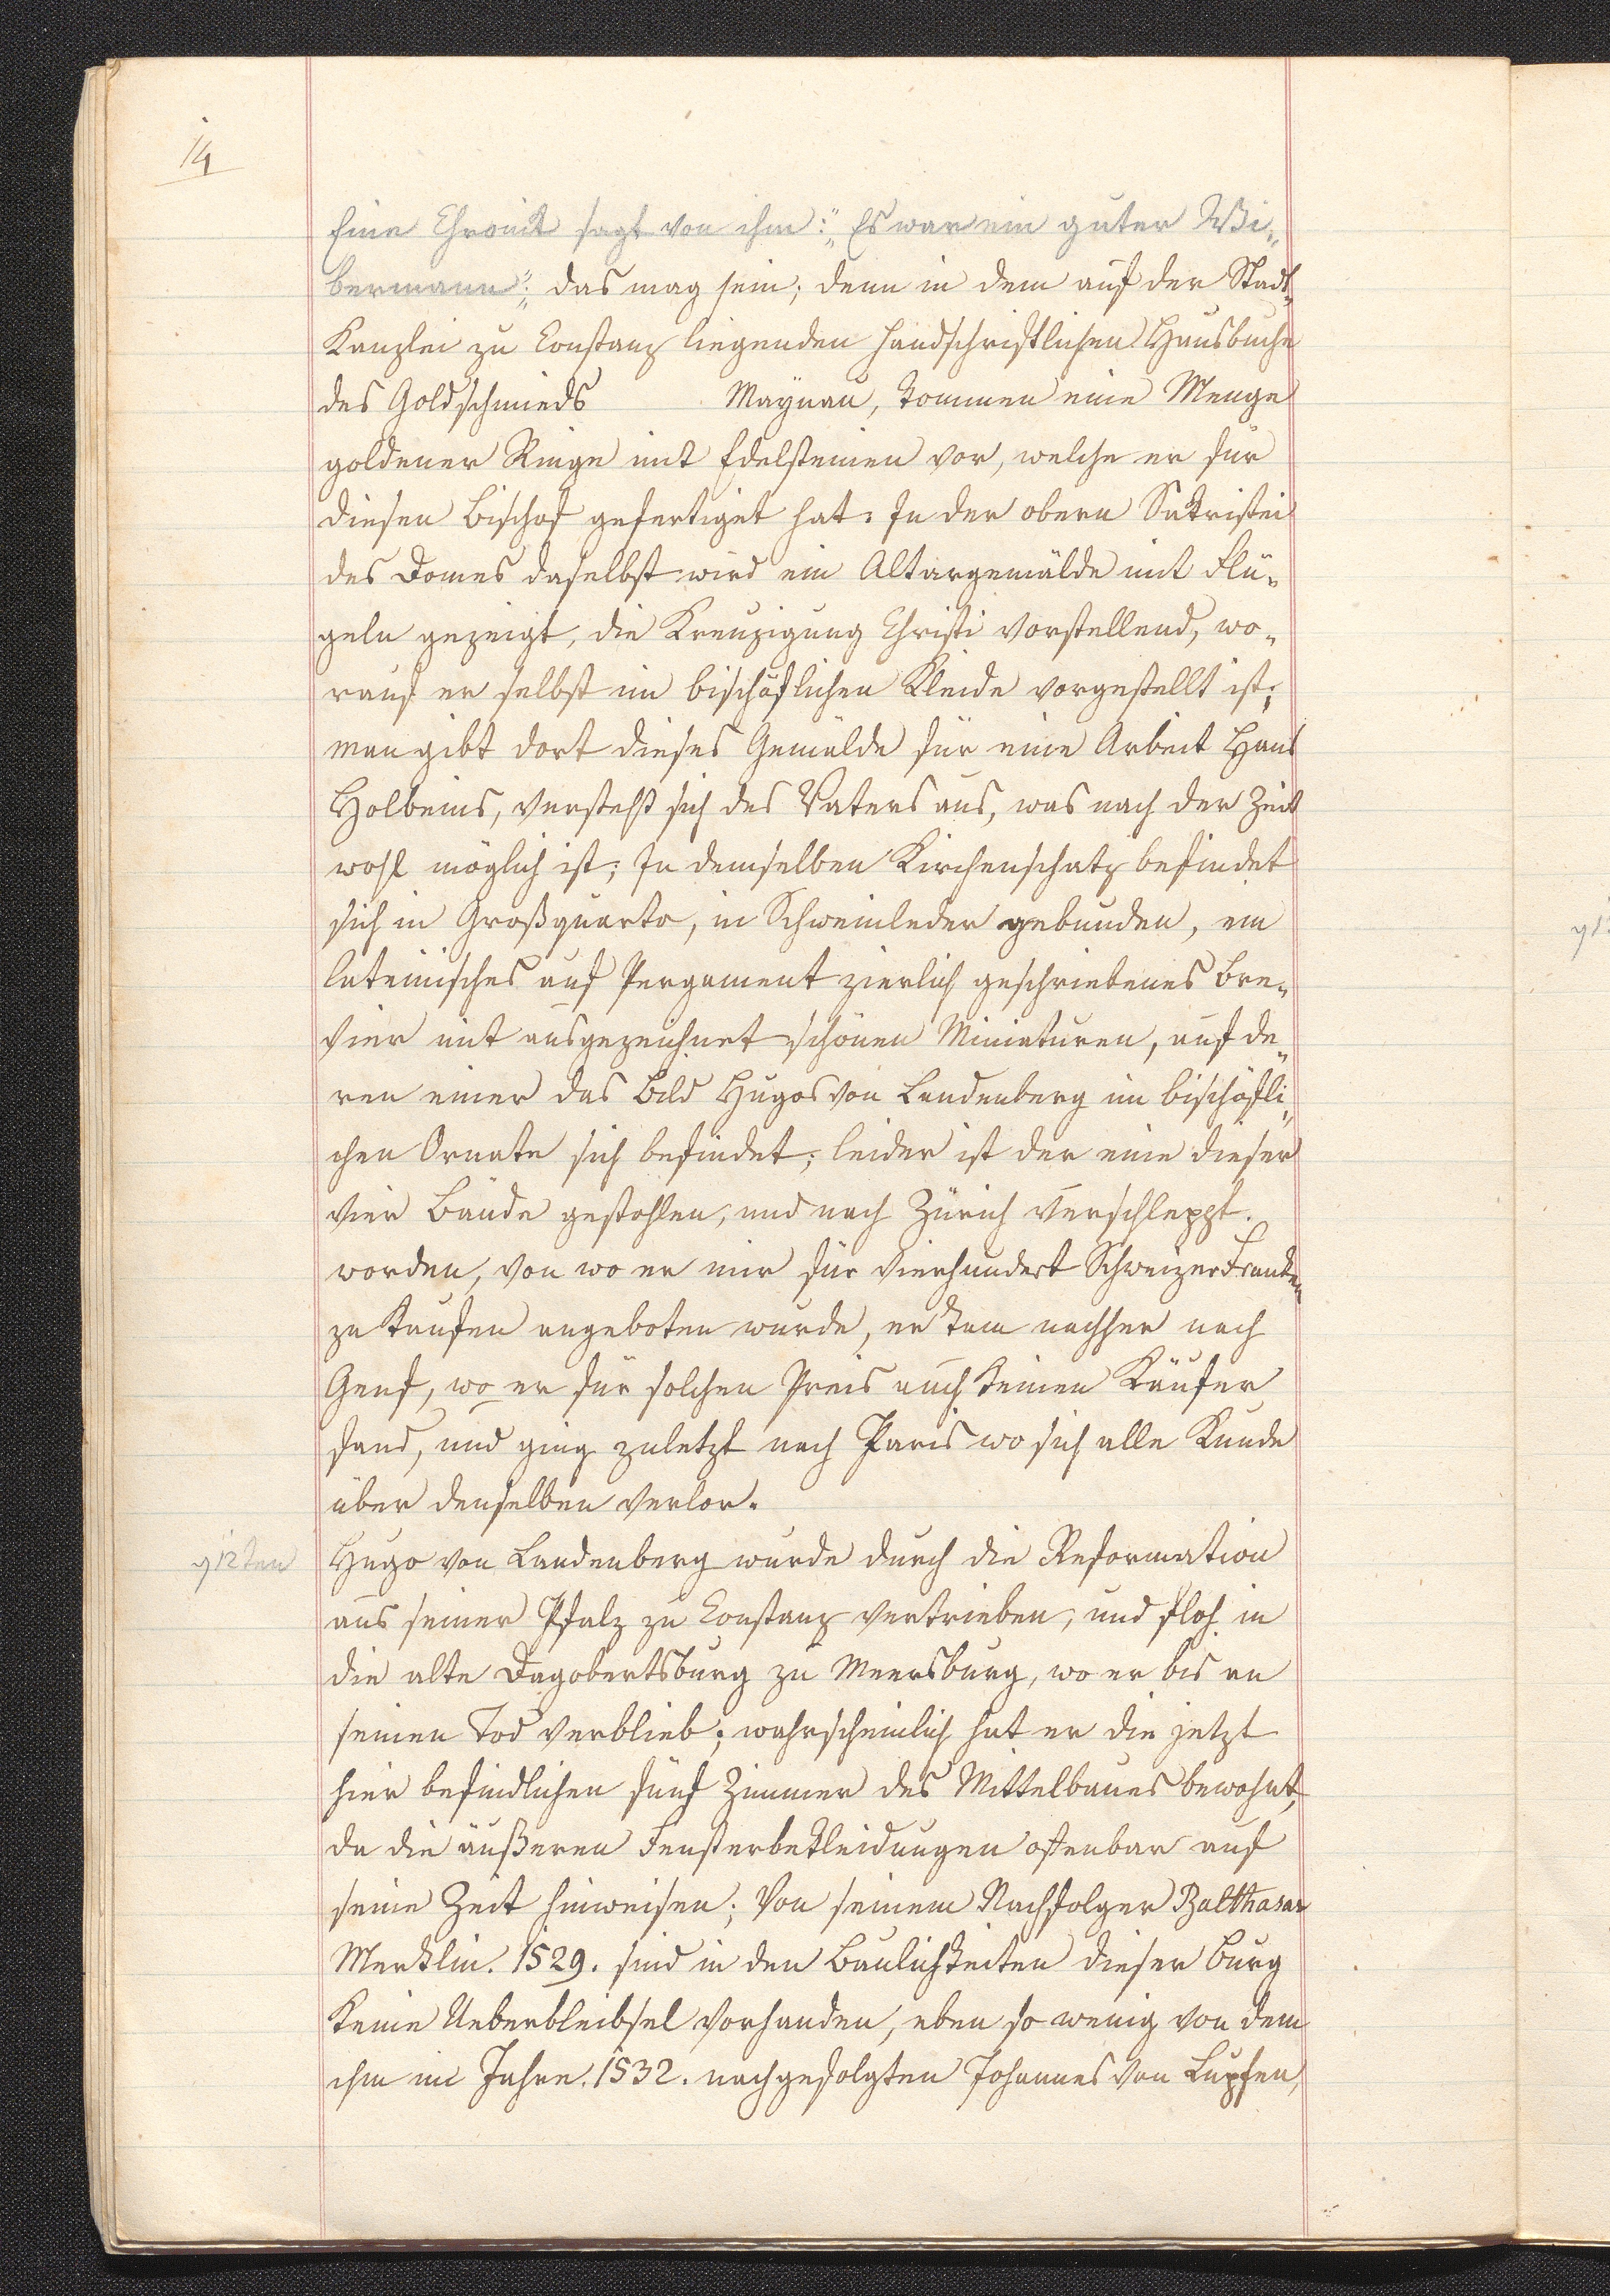 14
Eine Chronik sagt von ihm: „Es war ein guter Wi„
bermann“; das mag sein; denn in dem auf der Stadt„
Kanzlei zu Constanz liegenden handschriftlichen Hausbuche
des Goldschmieds Maÿnau, kommen eine Menge
goldener Ringe mit Edelsteinen vor, welche er für
diesen Bischof gefertiget hat. In der obern Sakristei
des Domes daselbst wird ein Altargemälde mit Flü„
geln gezeigt, die Kreuzigung Christi vorstellend, wo„
rauf er selbst im bischöflichen Kleide vorgestellt ist;
man gibt dort dieses Gemälde für eine Arbeit Hans
Holbeins, versteht sich des Vaters aus, was nach der Zeit
wohl möglich ist; In demselben Kirchenschatz befindet
sich in Großquarto, in Schweinleder gebunden, ein
lateinisches auf Pergament zierlich geschriebenes Bre„
vier mit ausgezeichnet schönen Miniaturen, auf de„
ren einer das Bild Hugos von Landenberg im bischöfli„
chen Ornate sich befindet; leider ist der eine dieser
vier Bände gestohlen, und nach Zürich verschleppt.
worden, von wo er mir für vierhundert Schweizer Franken
zu kaufen angeboten wurde, er kam nachher nach
Genf, wo er für solchen Preis auch keinen Käufer
fand, und ging zuletzt nach Paris wo sich alle Kunde
über denselben verlor.
12ten
Hugo von Landenberg wurde durch die Reformation
aus seiner Pfalz zu Constanz vertrieben, und floh in
die alte Dagobertsburg zu Meersburg, wo er bis an
seinen Tod verblieb; wahrscheinlich hat er die jetzt
hier befindlichen fünf Zimmer des Mittelbaues bewohnt,
da die äußeren Fensterbekleidungen offenbar auf
seine Zeit hinweisen; Von seinem Nachfolger Balthasar
Merklin. 1529. sind in den Baulichkeiten dieser Burg
keine Ueberbleibsel vorhanden, eben so wenig von dem
ihm im Jahre. 1532. nachgefolgten Johannes von Lupfen,